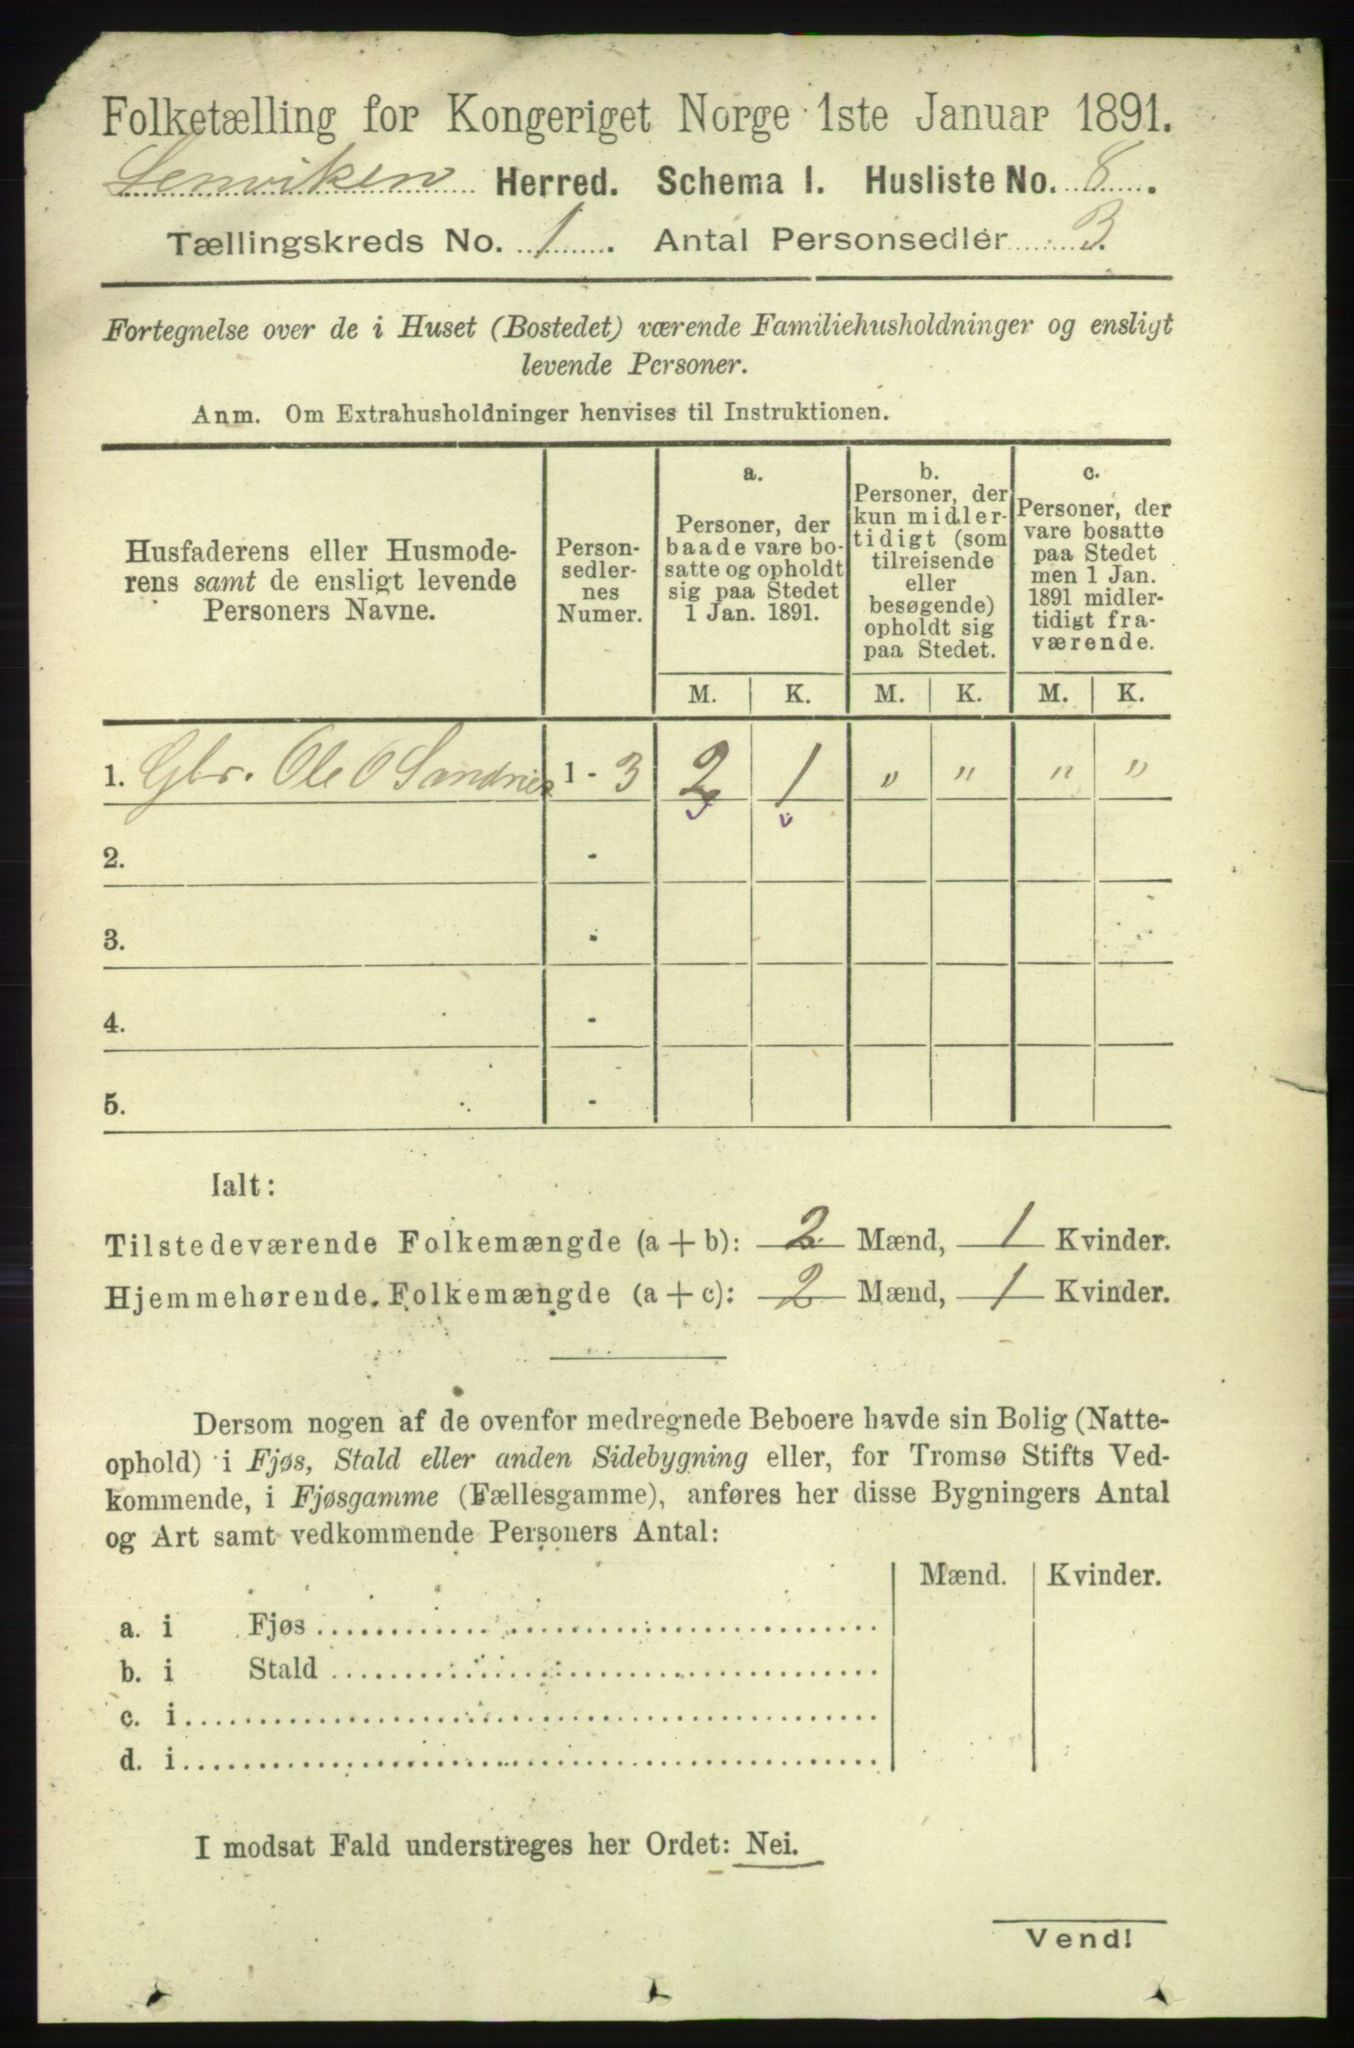 Folketælling for Kongeriget Norge 1ste Januar 1891.
Lenviken Herred. Schema I. Husliste No. 8.
Tællingskreds No. 1. Antal Personsedler 3.
Fortegnelse over de i Huset (Bostedet) værende Familiehusholdninger og ensligt
levende Personer.
Anm. Om Extrahusholdninger henvises til Instruktionen.
Husfaderens eller Husmode-
rens samt de ensligt levende
Personers Navne.
Person-
sedler-
nes
Numer.
a.
Personer, der
baade vare bo-
satte og opholdt
sig paa Stedet
1 Jan. 1891.
b.
Personer, der
kun midler-
tidigt (som
tilreisende
eller
besøgende)
opholdt sig
paa Stedet.
c.
Personer, der
vare bosatte
paa Stedet
men 1 Jan.
1891 midler-
tidigt fra-
værende.
M. K. M. K. M. K.
1. Gbr. Ole O Sandnes 1 - 3 2 1 " " " "
2. -
3. -
4. -
5. -
Ialt:
Tilstedeværende Folkemængde (a + b): 2 Mænd, 1 Kvinder.
Hjemmehørende Folkemængde (a + c): 2 Mænd, 1 Kvinder.
Dersom nogen af de ovenfor medregnede Beboere havde sin Bolig (Natte-
ophold) i Fjøs, Stald eller anden Sidebygning eller, for Tromsø Stifts Ved-
kommende, i Fjøsgamme (Fællesgamme), anføres her disse Bygningers Antal
og Art samt vedkommende Personers Antal:
Mænd. Kvinder.
a. i Fjøs
b. i Stald
c. i
d. i
I modsat Fald understreges her Ordet: Nei.
Vend!